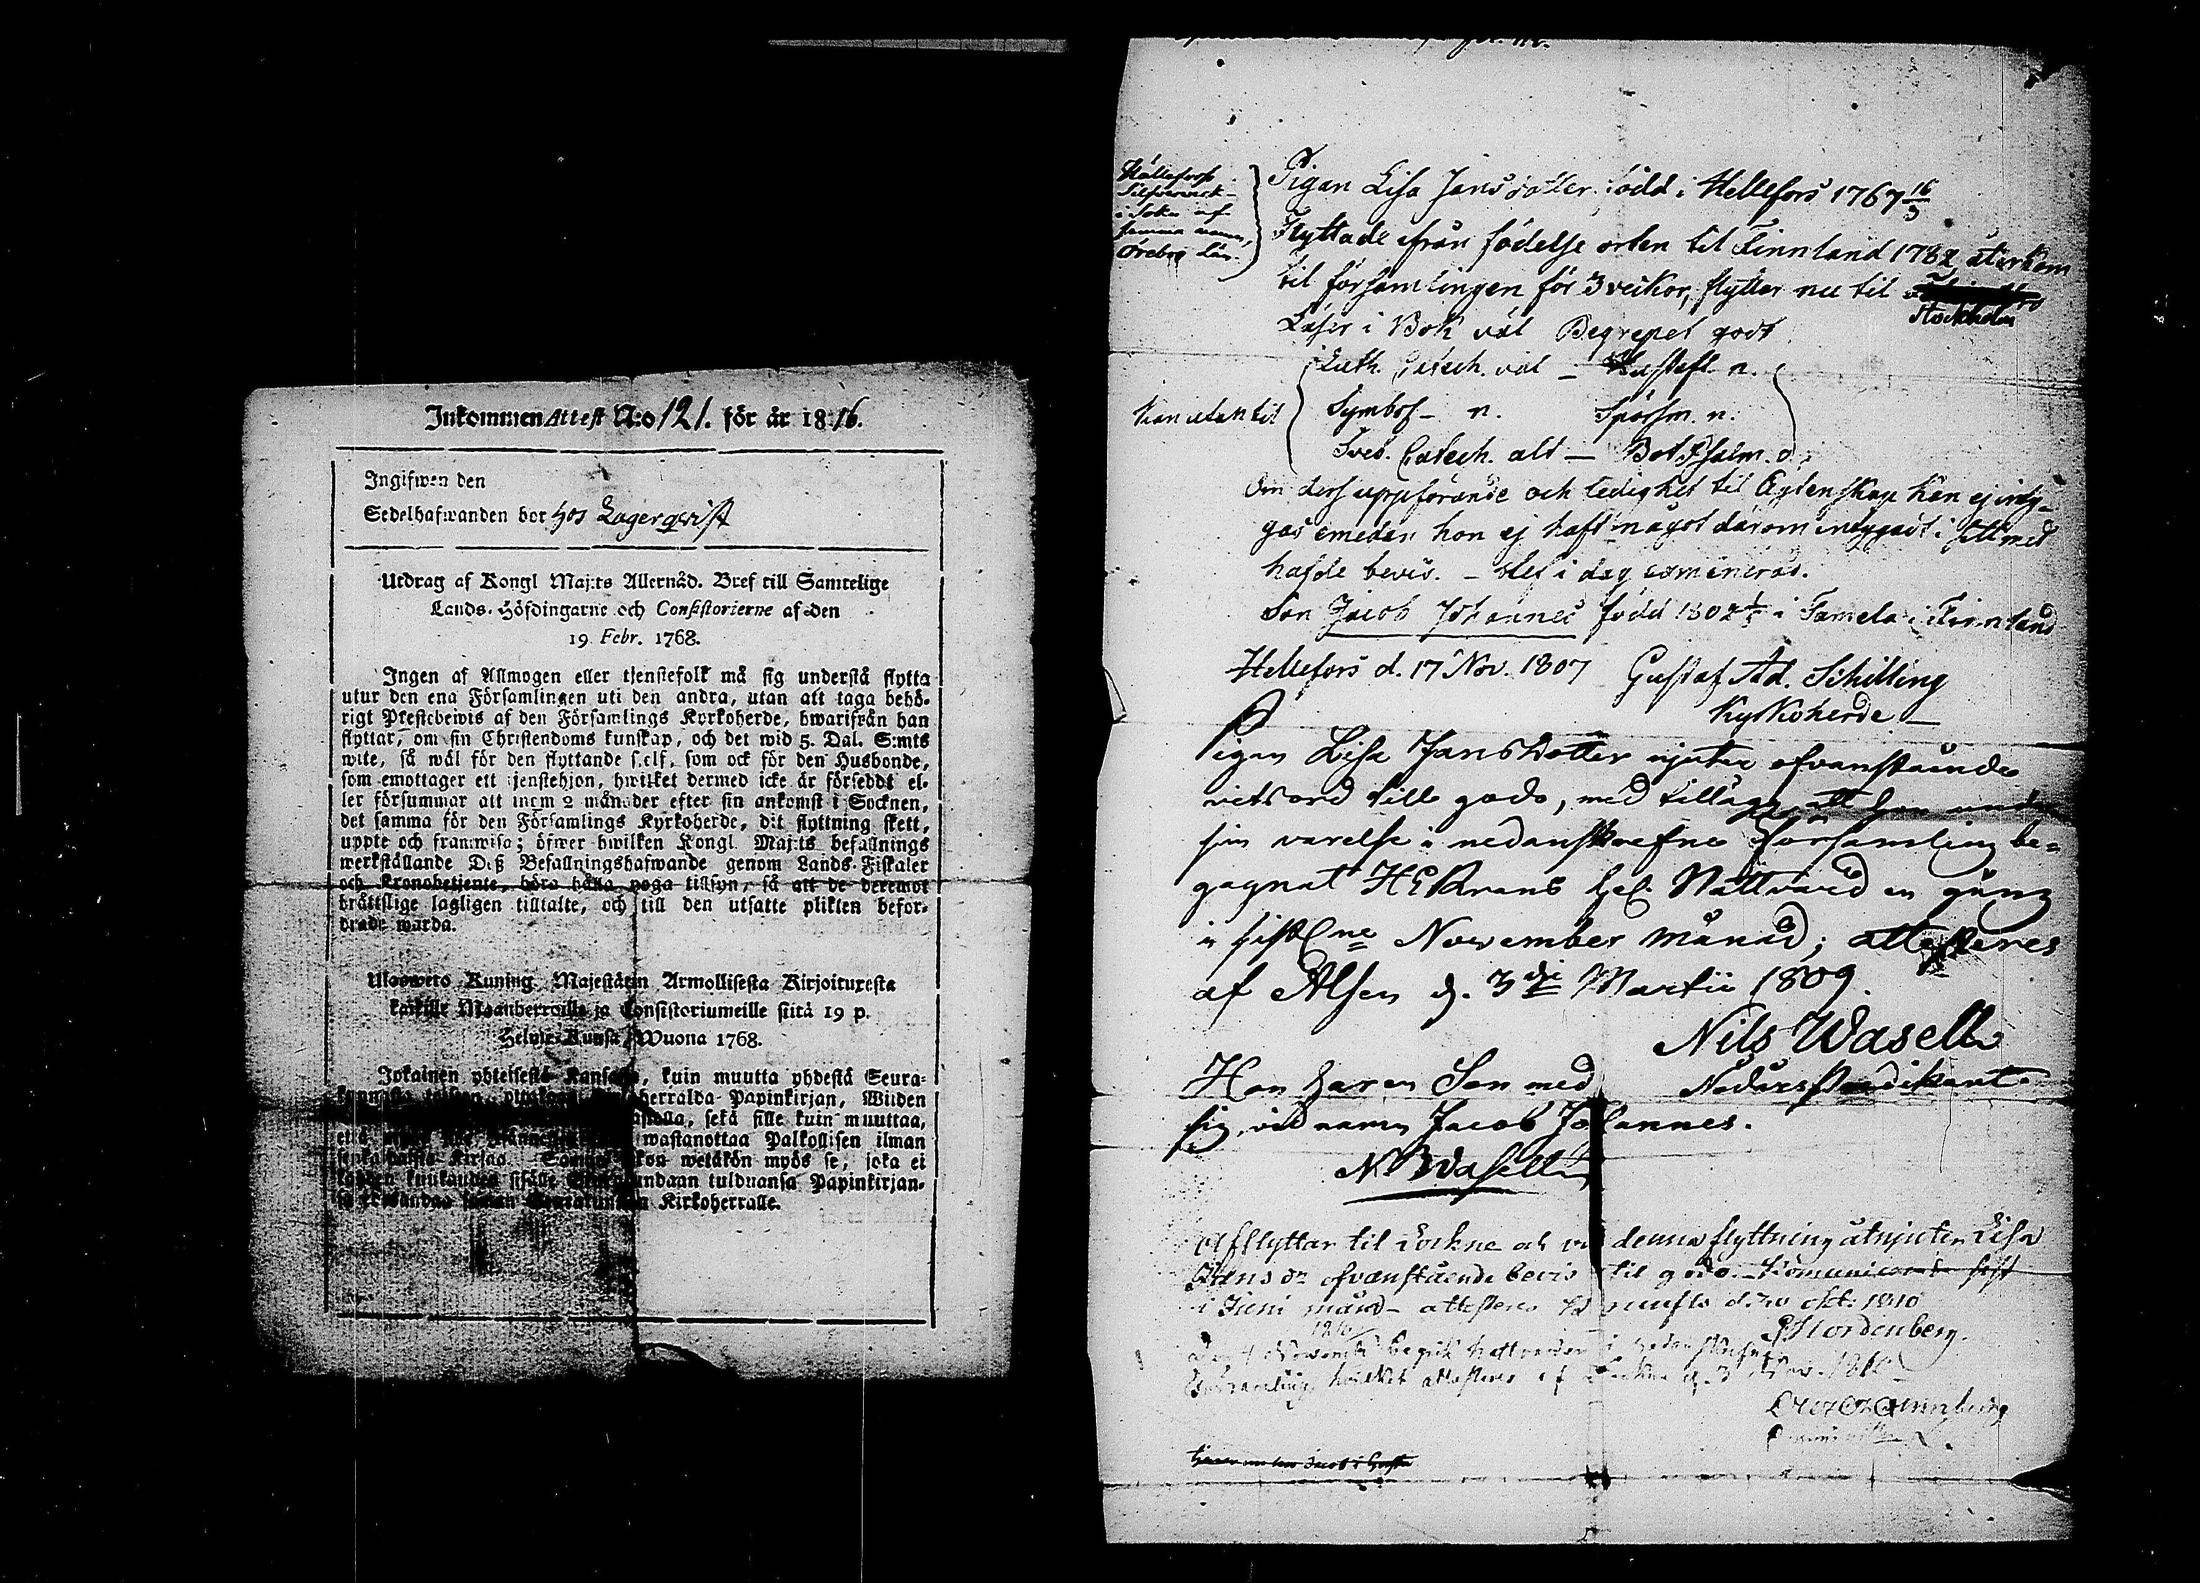 Inkommen Attest N:o 121. för år 1816.
Ingifwen den
Sedelhafwanden bor hos Lagerqvist
Utdrag af Kongl Maj:ts Allernåd. Bref till Samtelige
Lands-Höfdingarne och Consistorierne af den
19 Febr. 1768.
Ingen af Allmogen eller tjenstefolk må sig understå flytta
utur den ena Församlingen uti den andra, utan att taga behö-
rigt Prestebewis af den Församlings Kyrkoherde, hwarifrån han
flyttar, om sin Christendoms kunskap, och det wid 5. Dal. S:mts
wite, så wäl för den flyttande self, som ock för den Husbonde,
som emottager ett tjenstehjon, hwilket dermed icke är försedt el-
ler försummar att inom 2 månader efter sin ankomst i Socknen,
det samma för den Församlings Kyrkoherde, dit flyttning skett,
uppte och framwisa; öfwer hwilken Kongl. Maj:ts befallnings
werkställande Deß Befallningshafwande genom Lands-Fiskaler
och Kronobetjente, böra hålla noga tillsyn, så att de deremot
bråttslige lagligen tilltalte, och till den utsatte plikten befor-
drade warda.
Ulosweto Kuning. Majestätin Armollisesta Kirjoituxesta
kaikille Maanherroille ja Consistoriumeille siitä 19 p.
Helmi-Kuusa Wuona 1768.
Jokainen yhteisestä Kansasta, kuin muutta yhdestä Seura-
kunnasta toiseen, Papinkirjan, Wiiden
sekä sille kuin muuttaa,
että wastanottaa Palkollisen ilman
Kirjaa. wetäkön myös se, joka ei
kahden kuukauden sisälle tulduansa Papinkirjan-
Kirkoherralle.
Hällefors
Silfververck
i Sokn af
samma namn,
Örebro Län.
Pigan Lisa Jansdotter född i Hellefors 1767 16/3
Flyttade ifrån födelse orten til Finnland 1782 återkom
til församlingen för 3 veckor, flytter nu til
Stockholm
Läser i Bok väl Begrepet godt
Luth. Catech. väl – Hustafl. n.
Kan utan til Symbol – n. Spörsm. n.
Sveb. Catech. alt – Bot Psalm. d:o
Om dess uppförande och ledighet til Ägtenskap kan ej inty-
gas emedan hon ej haft något därom intygadt i sitt med
hafde bevis. – blef i dag examinerad.
Son Jacob Johannes född 1802 i Tamela i Finnland
Hellefors d. 17 Nov. 1807 Gustaf Ad. Schilling
Kyrkoherde –
Pigan Lisa Jansdotter njuter ofvanstående
vitsord till godo, med tillägg, att hon under
sin varelse i nedanskrefne Församling be-
gagnat HErrans hel. Nattvard en gång
i sistl:ne November månad; attesteres
af Alsen d. 3die Martii 1809.
Nils Wasell
Nådårs Prædikant
Hon har en Son med
sig, vid namn Jacob Johannes.
N. Wasell
Afflyttar til Lockne och vid denna flyttning åtnjuter Lisa
Jans dr ofvanstående bevis til godo. – Comunicerade sist
i Juni månd – attesteres d. 20 Okt: 1810
P. Nordenberg.
1810
Den 4 November begick nattvarden i nedanskrefne
Församling, hvilket attesteres af Lockne d.